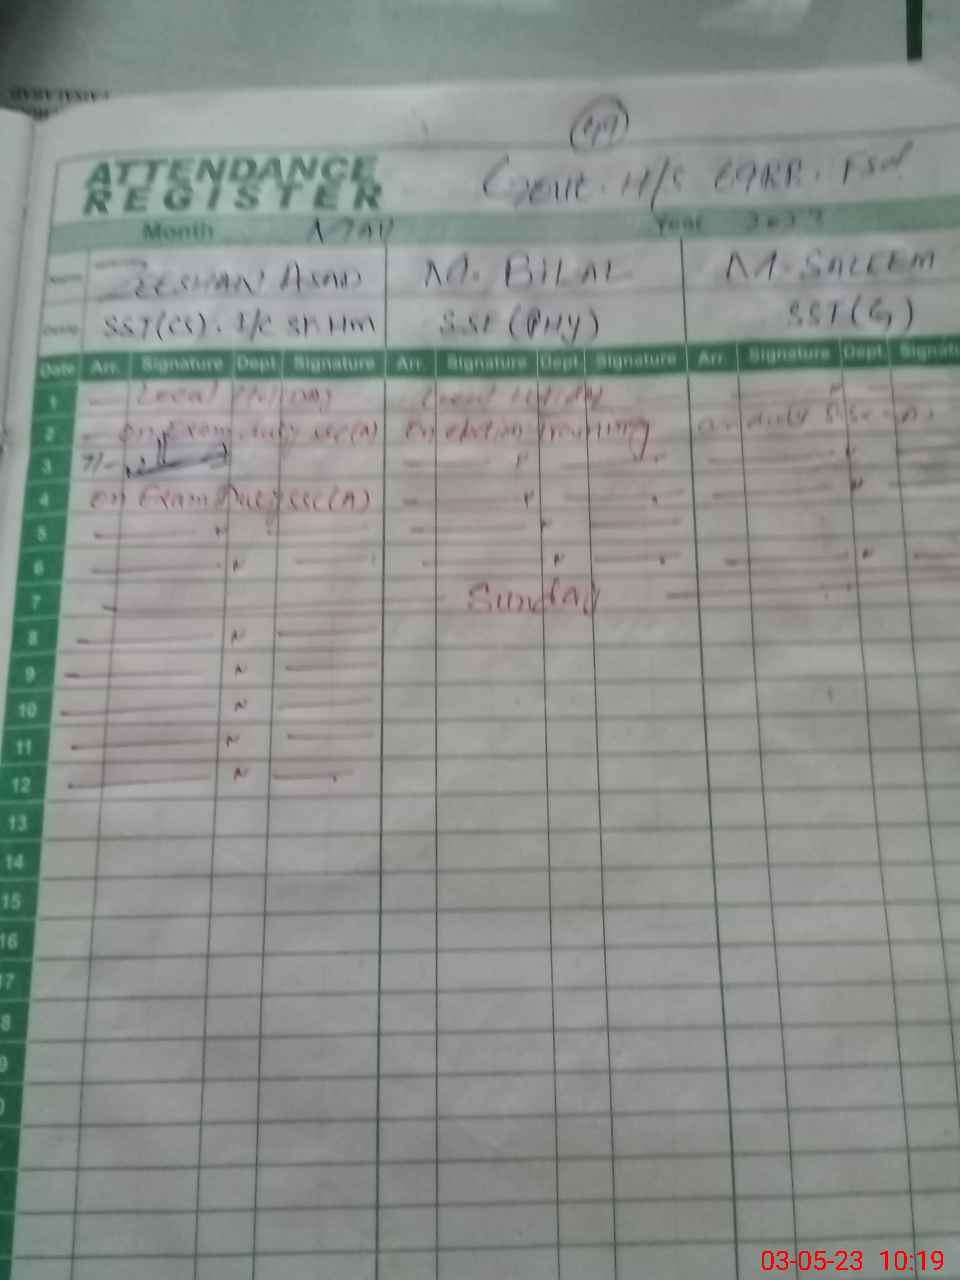 ATTENDANCE
REGISTER
Month MAY Year
ZEESHAN ASAD M. BILAL M. SALEEM
SST(CS). I/C SR. HM SST (PHY) SST(G)
Date Arr. Signature Dept. Signature Arr. Signature Dept. Signature Arr. Signature Dept. Signatu
1 Local Holiday Local Holiday
2 On Exam duty SSC(A) On election training
3 7/-
4 on Exam Duty SSC(A)
5
6
7 Sunday
8
9
10
11
12
13
14
15
16
17
8
9
03-05-23 10:19